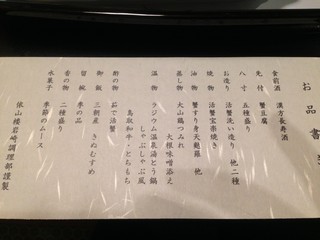 お品書き
食前酒 漢方長寿酒
先付 蟹豆腐
八寸 五種盛り
お造り 活蟹洗い造り 他二種
焼物 活蟹宝楽焼き
油物 蟹すり身天麩羅 他
蒸し物 大山鶏つみれ
大根味噌添え
温物 ラジウム温気湯とう鍋
しゃぶしゃぶ風
鳥取和牛・とちもち
酢の物 茹で活蟹
御飯 三朝産 きぬむすめ
留椀 季の品
香の物 二種盛り
水菓子 季節のムース
依山楼岩崎調理部謹製